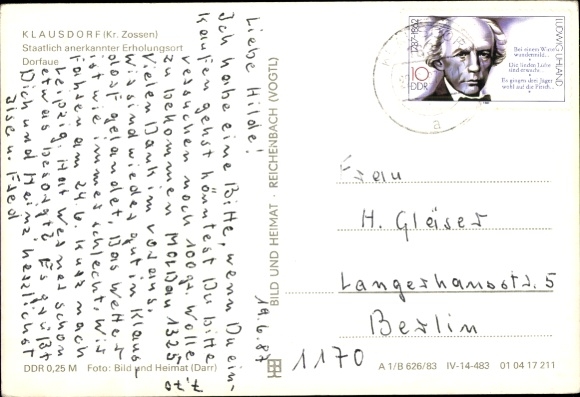 KLAUSDORF (Kr. Zossen)
Staatlich anerkannter Erholungsort
Dorfaue
19.6.87
Liebe Hilde!
Ich habe eine Bitte, wenn Du ein-
kaufen gehst könntest Du bitte
versuchen noch 100 gr. Wolle
zu bekommen Moldau 1325 7,70
Vielen Dank im voraus.
Wir sind wieder gut in Klaus-
dorf gelandet. Das Wetter
ist wie immer schlecht. Wir
fahren am 24.6. kurz nach
Leipzig. Hat Werner schon
etwas besorgt? Es grüßt
Dich und Heinz herzlichst
Ilse u. Fred
DDR 0,25 M Foto: Bild und Heimat (Darr)
BILD UND HEIMAT · REICHENBACH (VOGTL)
1787-1862
LUDWIG UHLAND
Bei einem Wirte
wundermild...
Die linden Lüfte
sind erwacht...
Es gingen drei Jäger
wohl auf die Pirsch...
10
DDR
a
Frau
H. Gläser
Langerhansstr. 5
Berlin
1170
A 1/B 626/83 IV-14-483 01 04 17 211